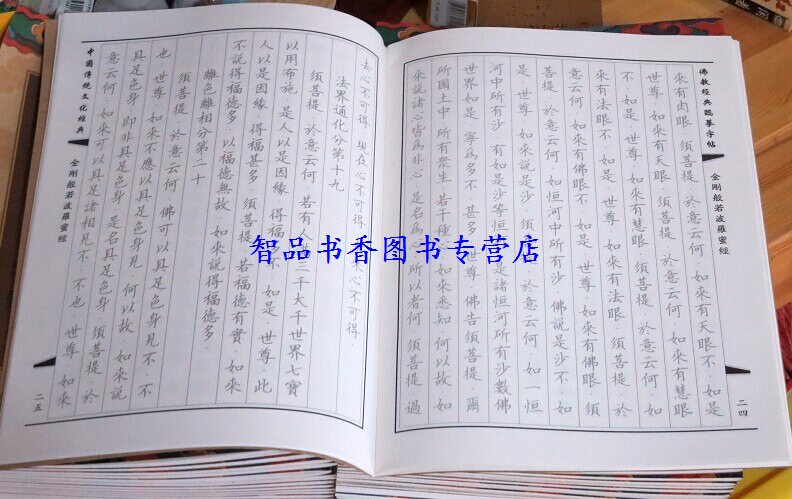 佛教經典臨摹字帖
金剛般若波羅蜜經
二四
來有肉眼·須菩提·於意云何·如來有天眼不·如是
世尊·如來有天眼·須菩提·於意云何·如來有慧眼
不·如是·世尊·如來有慧眼·須菩提·於意云何·如
來有法眼不·如是·世尊·如來有法眼·須菩提·於
意云何·如來有佛眼不·如是·世尊·如來有佛眼·須
菩提·於意云何·如恒河中所有沙·佛說是沙不·如
是·世尊·如來說是沙·須菩提·於意云何·如一恒
河中所有沙·有如是沙等恒河·是諸恒河所有沙數佛
世界如是·寧為多不·甚多·世尊·佛告須菩提·爾
所國土中·所有衆生·若干種心·如來悉知·何以故·如
來說諸心皆為非心·是名為心·所以者何·須菩提·過
去心不可得·現在心不可得·來心不可得·
法界通化分第十九
須菩提·於意云何·若有人三千大千世界七寶
以用布施·是人以是因緣·得福多不·如是·世尊·此
人以是因緣·得福甚多·須菩提·若福德有實·如來
不說得福德多·以福德無故·如來說得福德多·
離色離相分第二十
須菩提·於意云何·佛可以具足色身見不·不
也·世尊·如來不應以具足色身見·何以故·如來說
具足色身·即非具足色身·是名具足色身·須菩提·於
意云何·如來可以具足諸相見不·不也·世尊·如來
中國傳統文化經典
金剛般若波羅蜜經
二五
智品书香图书专营店